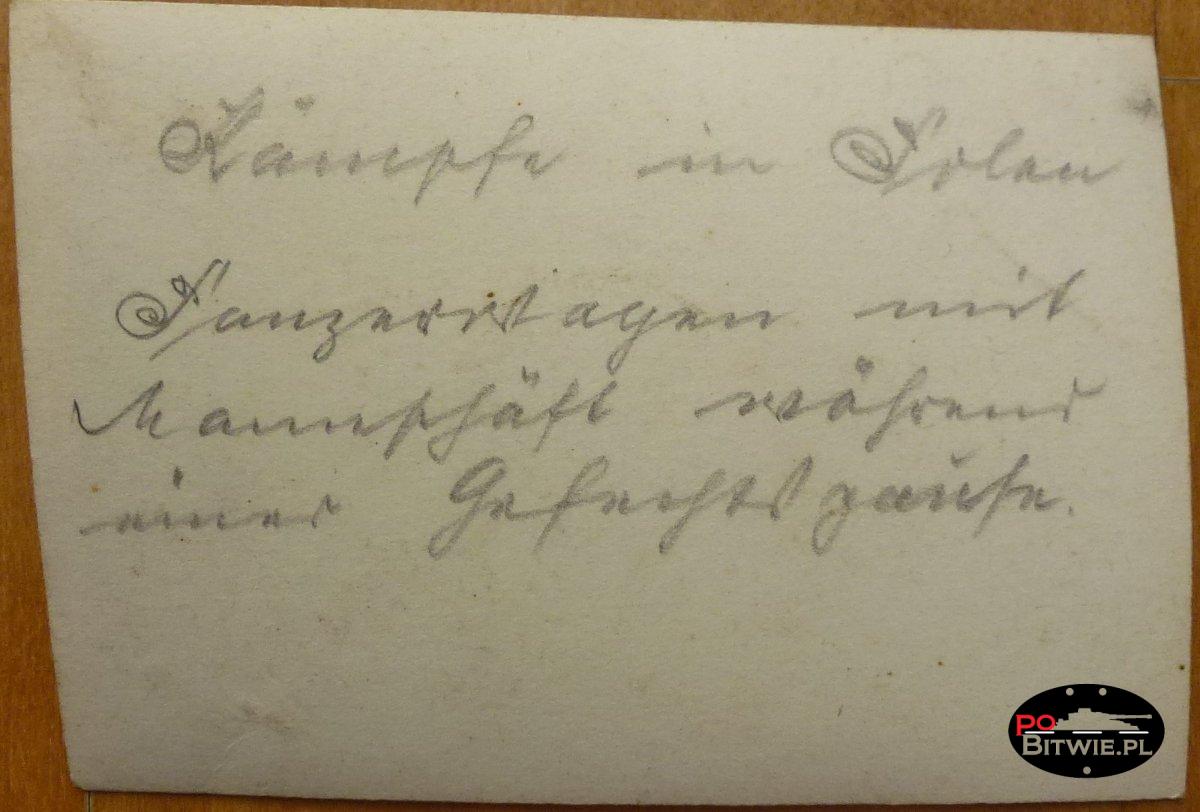 Kämpfe in Polen
Panzerwagen mit
Mannschaft während
einer Gefechtspause.
PO
BITWIE.PL